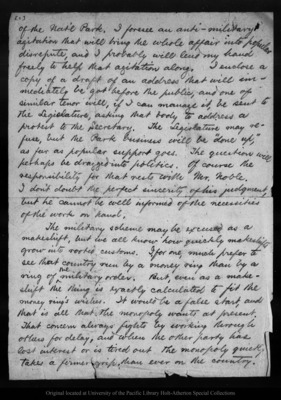 (2)
of the Nat'l Park. I foresee an anti-military
agitation that will bring the whole affair into popular
disrepute, and I probably will lend my hand
freely to help that agitation along. I enclose a
copy of a draft of an address that will im-
mediately be got before the public, and one of
similar tenor will, if I can manage it, be sent to
the Legislature, asking that body to address a
protest to the Secretary. The Legislature may re-
fuse, but the Park business will be done up,
as far as popular support goes. The question will
perhaps be dragged into politics. Of course the
responsibility for that rests with Mr. Noble.
I don't doubt the perfect sincerity of his judgment
but he cannot be well informed of the necessities
of the work on hand.
The military scheme may be excused as a
makeshift, but we all know how quickly makeshifts
grow into rooted customs. I for one, much prefer to
see that country run by a money ring than by a
ring of the military order. But even as a make-
shift the thing is exactly calculated to fit the
money ring's wishes. It would be a false start, and
that is all that the monopoly wants at present.
That concern always fights by working through
others for delay, and when the other party has
lost interest or is tired out the monopoly quickly
takes a firmer grip than ever on the country.
Original located at University of the Pacific Library Holt-Atherton Special Collections